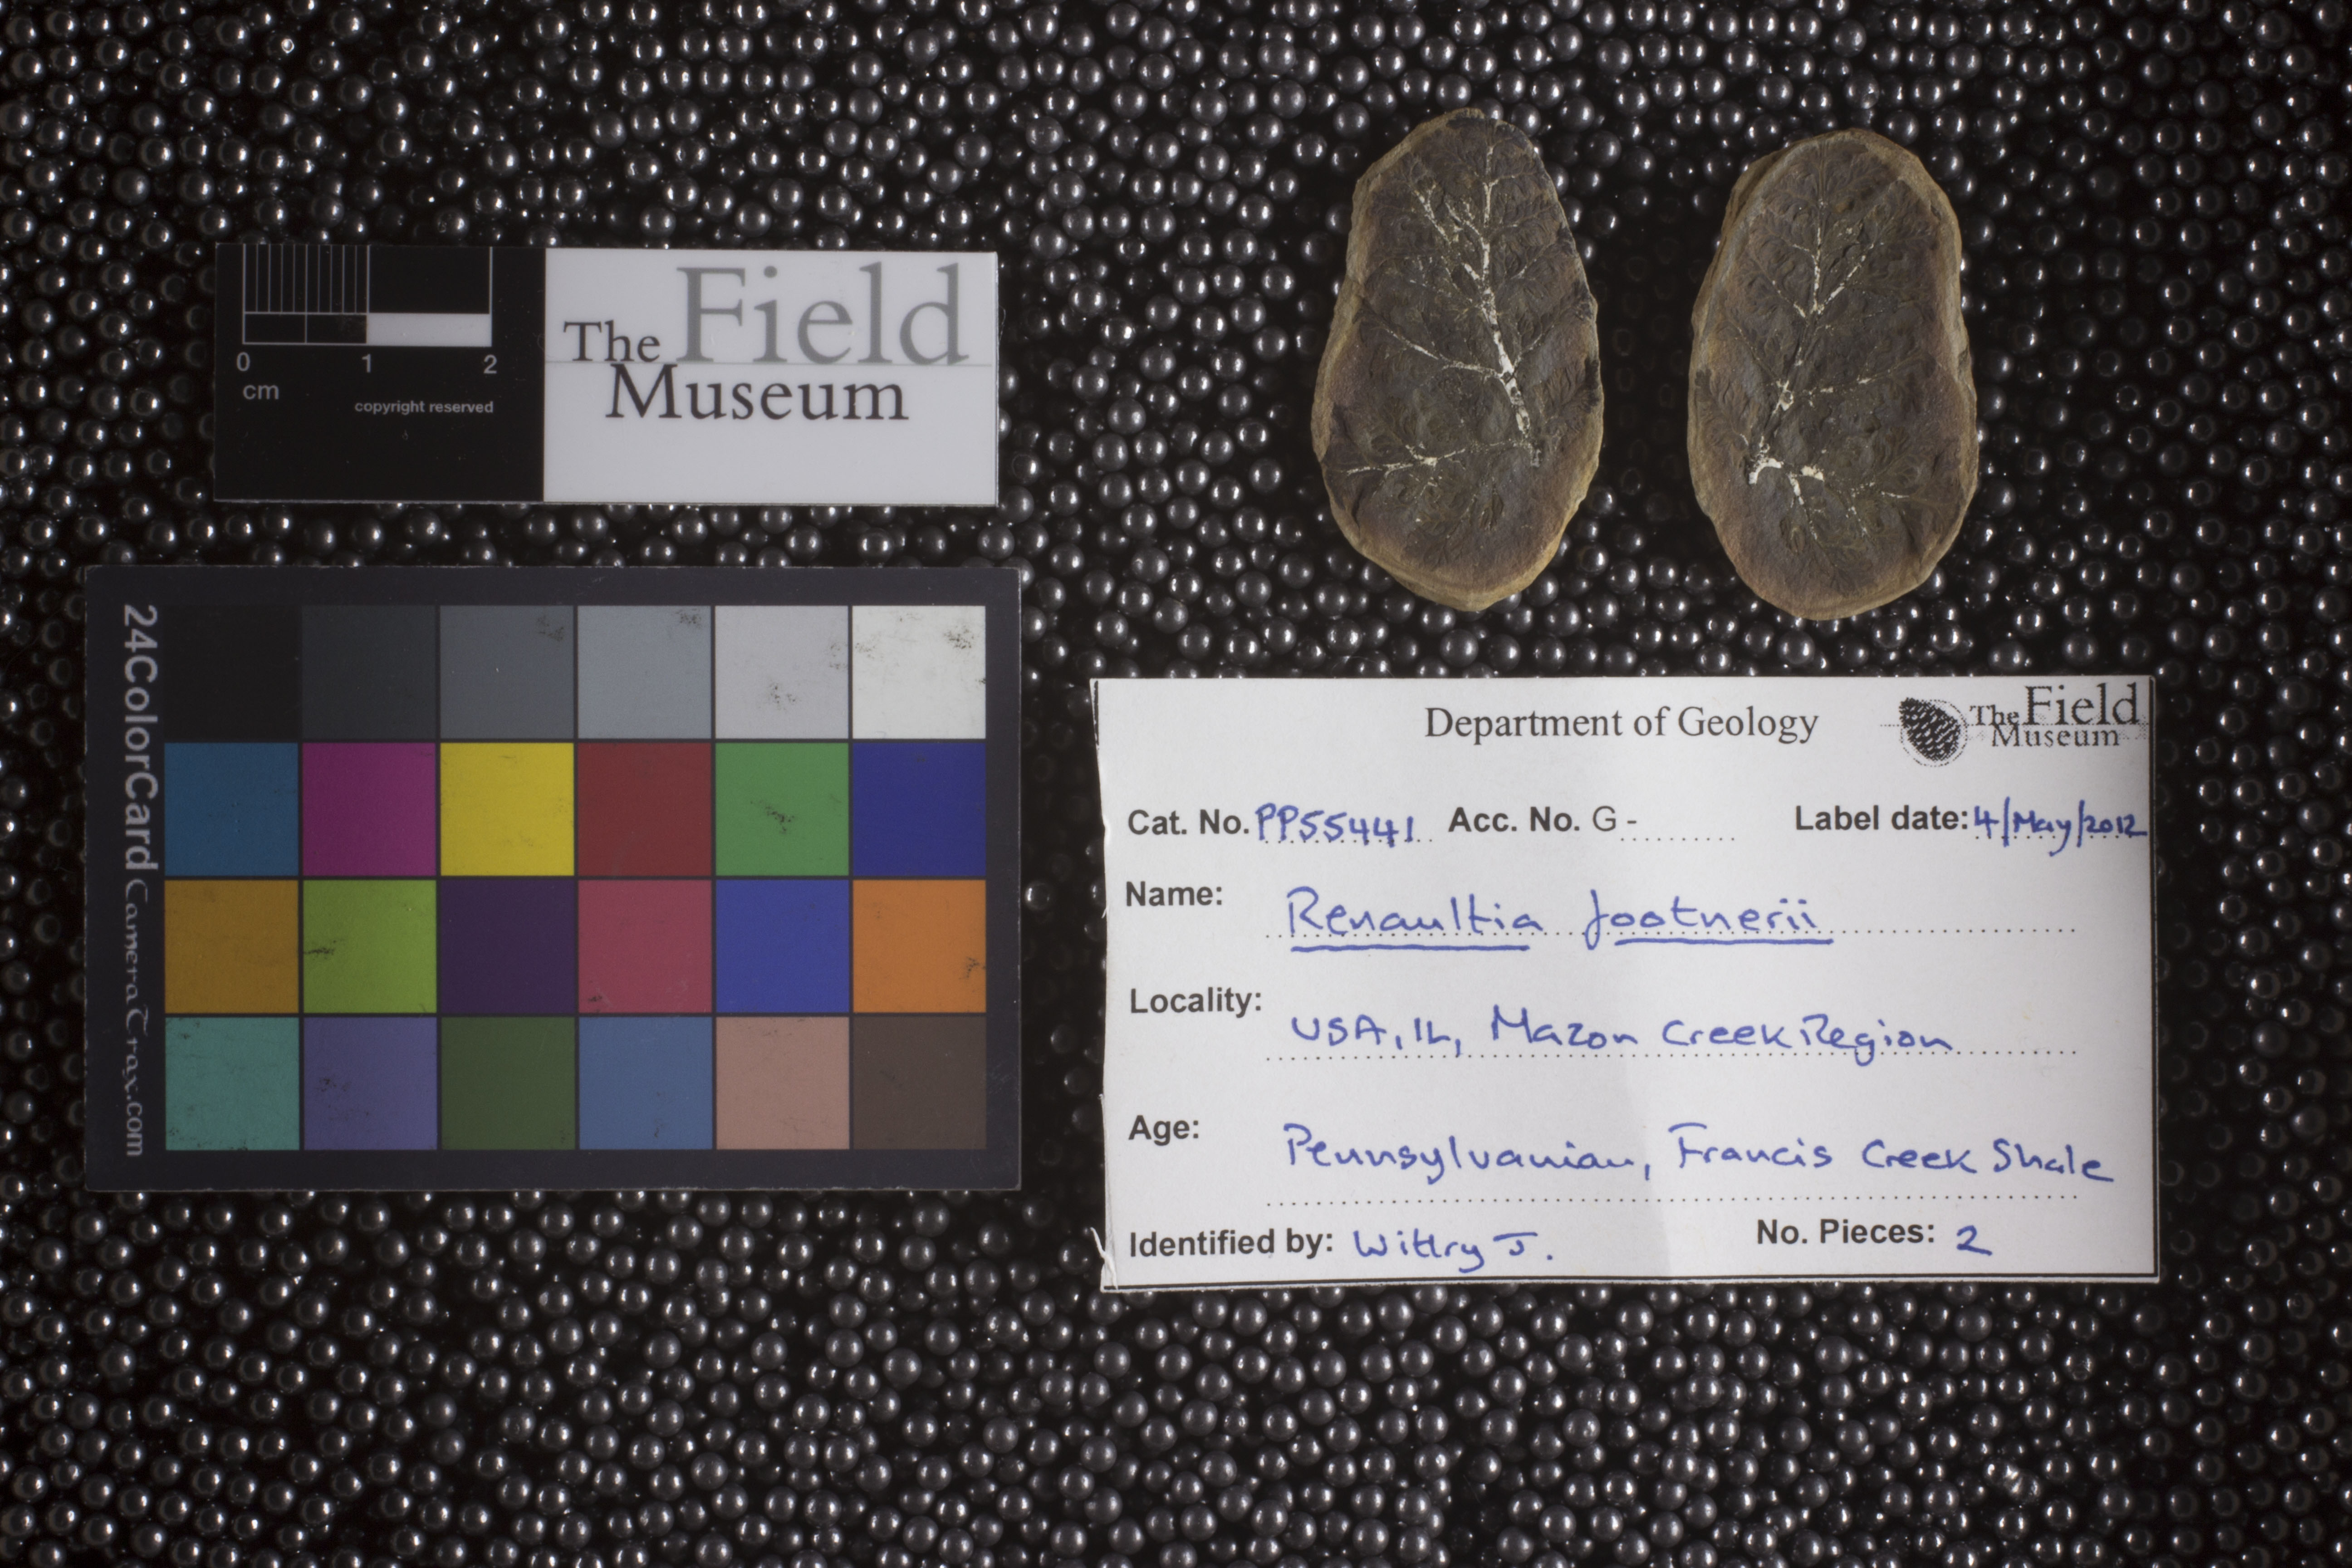 0 1 2
cm
copyright reserved
The Field
Museum
24ColorCard CameraTrax.com
Department of Geology
The Field
Museum
Cat. No. PP55441 Acc. No. G - Label date: 4/May/2012
Name: Renaultia footnerii
Locality: USA, IL, Mazon Creek Region
Age: Pennsylvanian, Francis Creek Shale
Identified by: Wittry J. No. Pieces: 2